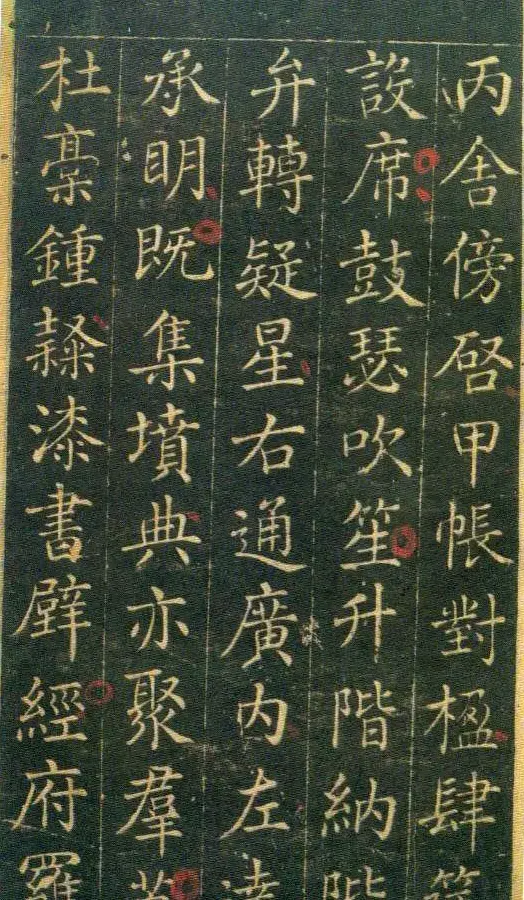 丙舍傍啓甲帳對楹肆筵
設席鼓瑟吹笙升階納陛
弁轉疑星右通廣內左達
承明既集墳典亦聚羣英
杜稾鍾隸漆書壁經府羅